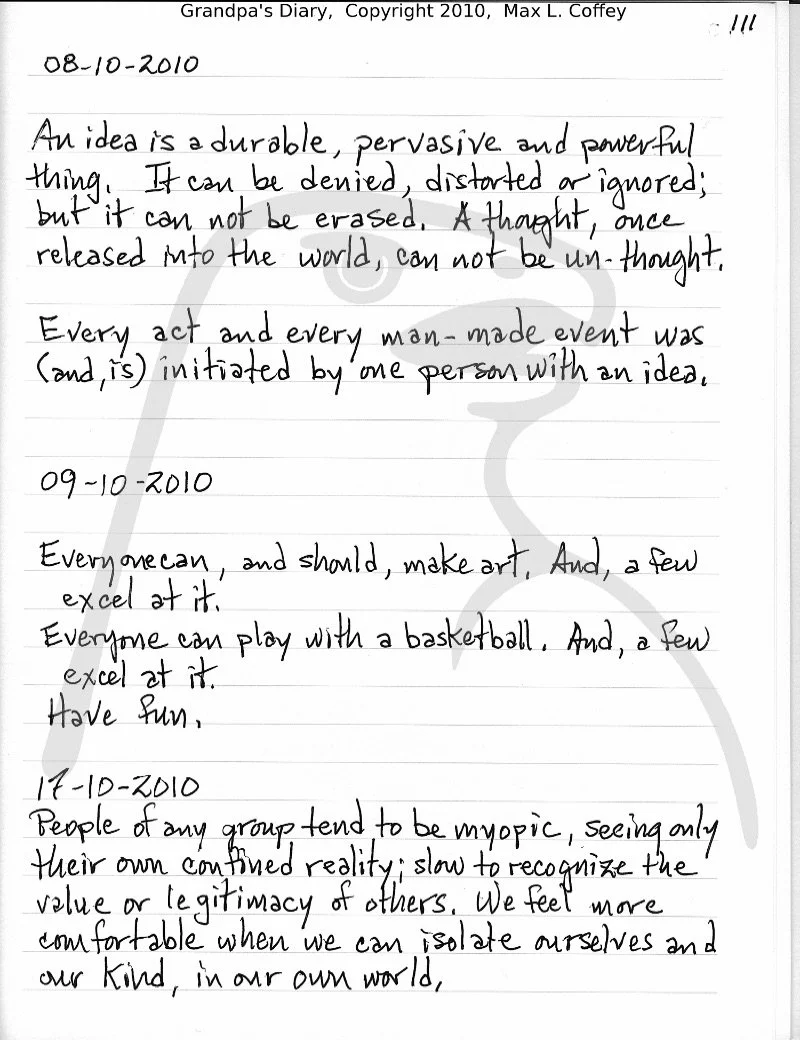 Grandpa's Diary, Copyright 2010, Max L. Coffey
111
08-10-2010
An idea is a durable, pervasive and powerful
thing. It can be denied, distorted or ignored;
but it can not be erased. A thought, once
released into the world, can not be un-thought.
Every act and every man-made event was
(and, is) initiated by one person with an idea.
09-10-2010
Everyone can, and should, make art. And, a few
excel at it.
Everyone can play with a basketball. And, a few
excel at it.
Have fun.
17-10-2010
People of any group tend to be myopic, seeing only
their own confined reality; slow to recognize the
value or legitimacy of others. We feel more
comfortable when we can isolate ourselves and
our kind, in our own world.